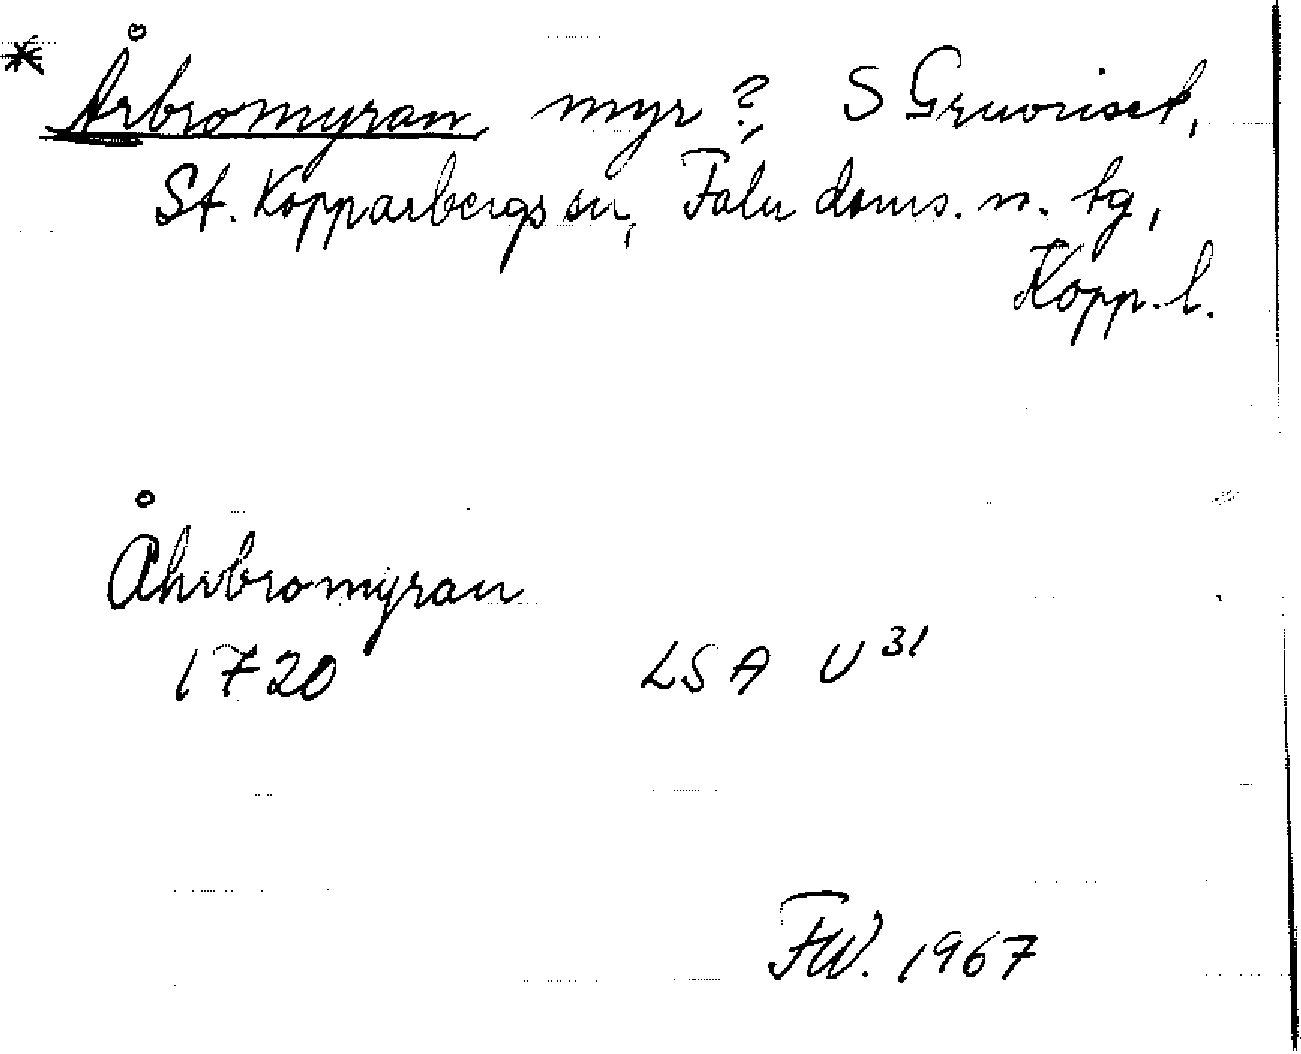 * Årbromyran, myr?, S Gruvriset,
St. Kopparbergs sn, Falu doms. n. tg,
Kopp. l.
Åhrbromyran
1720 LSA U 31
FW. 1967